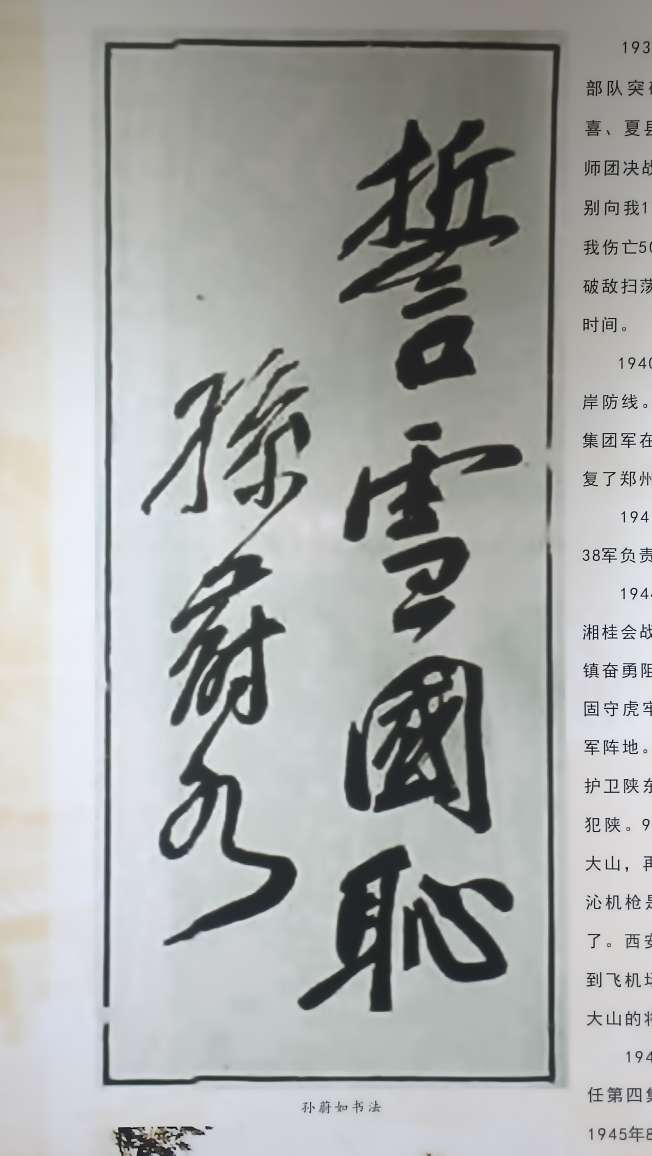 誓雪國恥
孫蔚如
孙蔚如书法
193
部队突破
喜、夏县
师团决战
别向我1
我伤亡50
破敌扫荡
时间。
1940
岸防线。
集团军在
复了郑州
194
38军负责
1944
湘桂会战
镇奋勇阻
固守虎牢
军阵地。
护卫陕东
犯陕。9
大山，再
沁机枪是
了。西安
到飞机场
大山的将
194
任第四集
1945年8